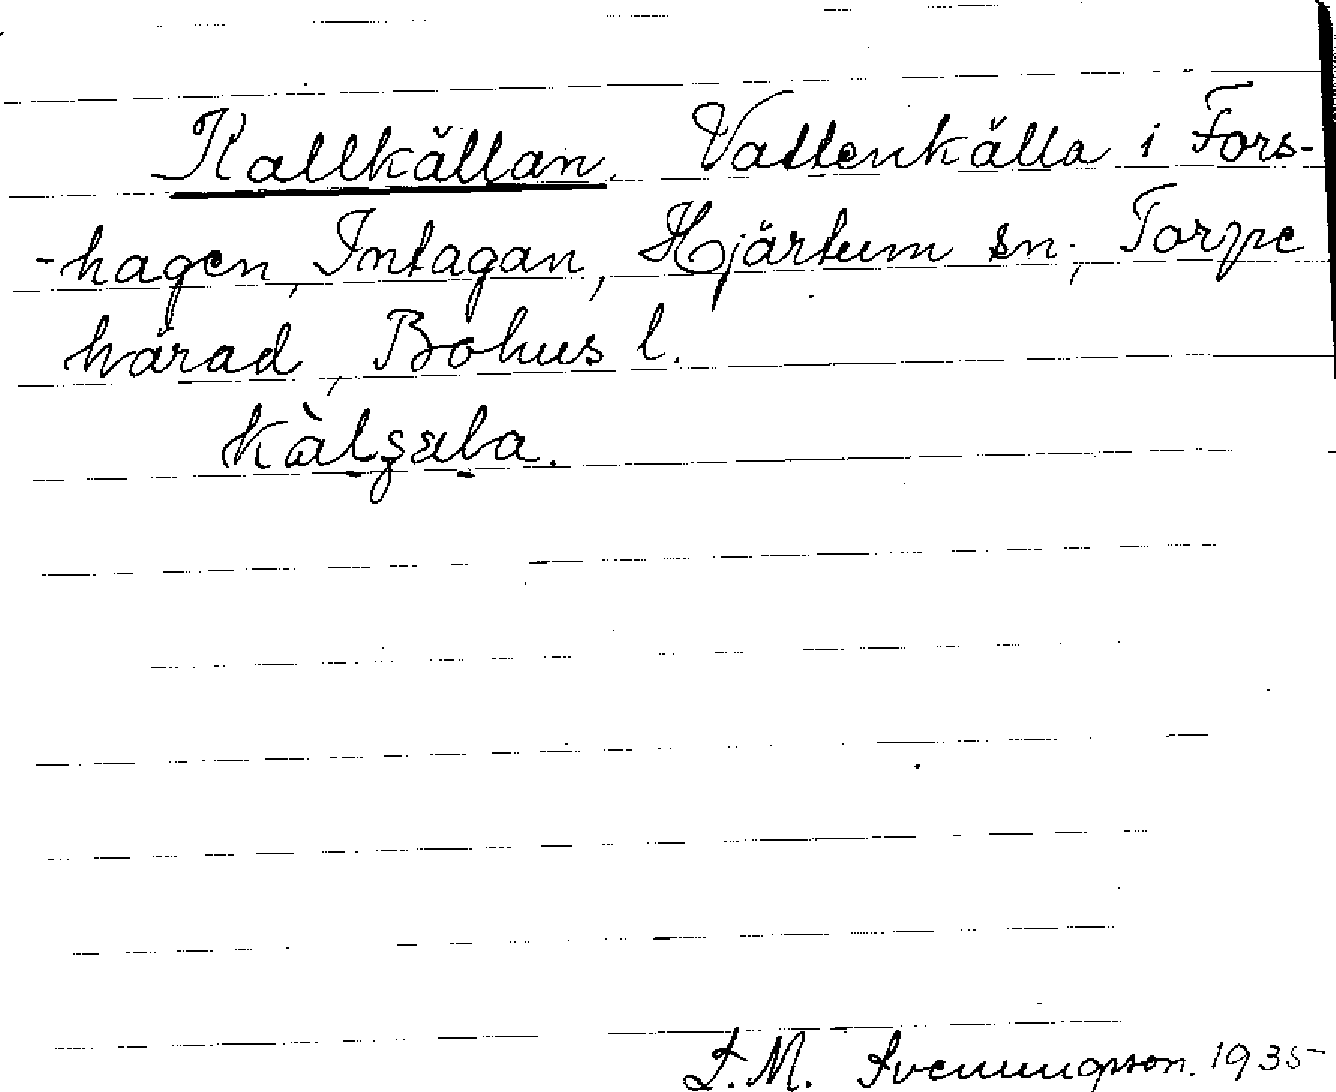 Kallkällan. Vattenkälla i Fors-
-hagen, Intagan, Hjärtum sn; Torpe
härad, Bohus l.
kàlʂæla.
F.M. Svenungsson. 1935